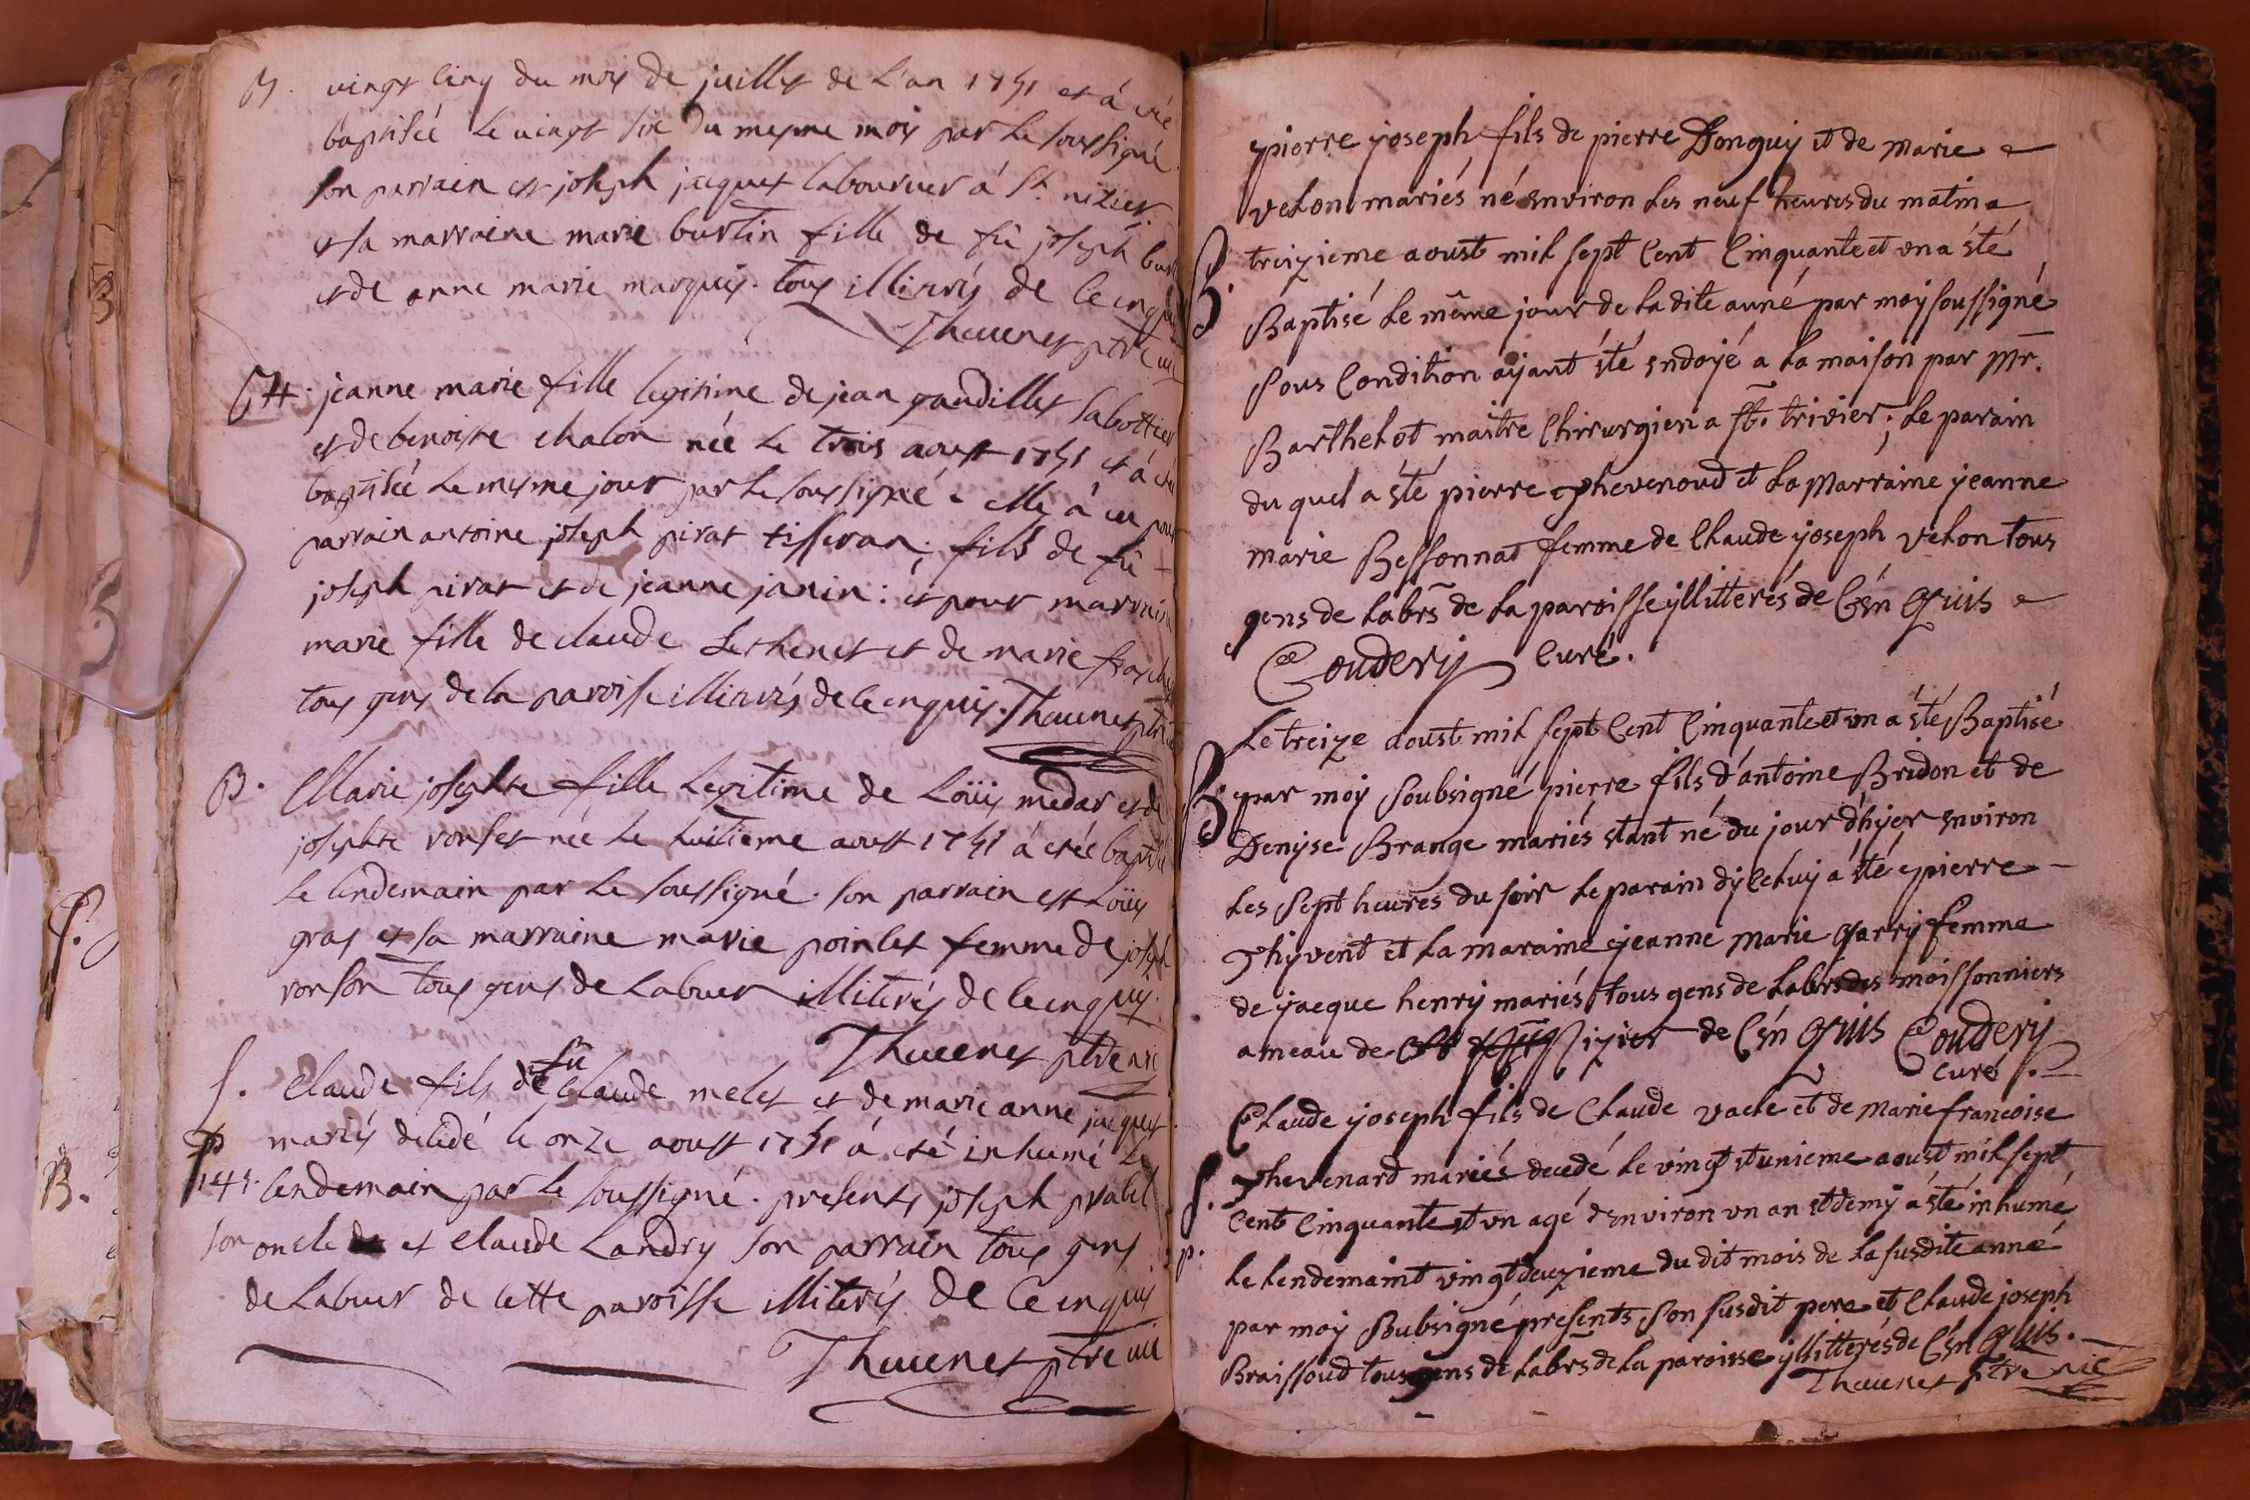 B. vingt cinq du mois de juillet de L'an 1751 et á eté
baptisée Le vingt six du mesme mois par Le soussigné.
son parrain est joseph jacquet laboureur á St. nizier.
et sa marraine marie burtin fille de fû joseph
et de anne marie marquis. tous illiterés de Cenquis
Thevenet ptre vic
jeanne marie fille legitime de jean gaudillet sabottier
et de benoiste chalon née Le trois aoust 1751 et á eté
baptisée Le mesme jour par Le soussigné. elle á eu pour
parrain antoine joseph pirat tisseran; fils de fû
joseph pirat et de jeanne janin: et pour marraine
marie fille de claude et de marie
tous gens de la paroisse illiterés de Cenquis. Thevenet ptre
B. Marie josephte fille Legitime de Loüis medar et de
josephte ronset née Le huitieme aoust 1751 á etée baptisée
Le lendemain par Le soussigné. son parrain est Loüis
gras et sa marraine marie poinlet femme de joseph
ronson tous gens de Labeur illiterés de Cenquis.
Thevenet ptre vic
S. Claude fils de fû Claude melet et de marie anne jacquet
mariés decedé le onze aoust 1751 á eté inhumé Le
lendemain par Le soussigné. presents joseph
son oncle et claude Landry son parrain tous gens
de Labeur de cette paroisse illiterés de Cenquis
Thevenet ptre vic
pierre joseph fils de pierre Donguy et de marie
velon mariés né environ les neuf heures du matin
B. treizieme aoust mil sept Cent Cinquante et un a été
Baptisé le même jour de la dite anné par moy soussigné
sous Condition ayant été endoyé a la maison par Mr.
Barthelot maitre Chirurgien a St. trivier; le parain
du quel a été pierre thevenoud et la Marraine jeanne
marie Bessonnat femme de Claude joseph velon tous
gens de labrs de la paroisse yllitterés de Cén Quis
Couderij Curé.
Le treize aoust mil sept Cent Cinquante et un a été Baptisé
B. par moy soubsigné pierre fils d'antoine Bridon et de
Denyse Brange mariés étant né du jour d'hyer environ
les sept heures du soir le parain dyceluy a été pierre
Thyvent et la maraine jeanne marie garry femme
de jacque henry mariés tous gens de labrs des moissonniers
ameau de Nizier de Cén Quis Couderij
Curé
Claude joseph fils de Claude vacle et de marie francoise
S. thevenard mariés decedé le vingt et unieme aoust mil sept
Cent Cinquante et un agé d'environ un an et demy a été inhumé
p. le lendemaint vingt deuzieme du dit mois de la susdite anneé
par moy soubsigné presents son susdit pere et Claude joseph
Braissoud tous gens de labrs de la paroisse yllitterés de Cén Quis.
Thevenet ptre vic